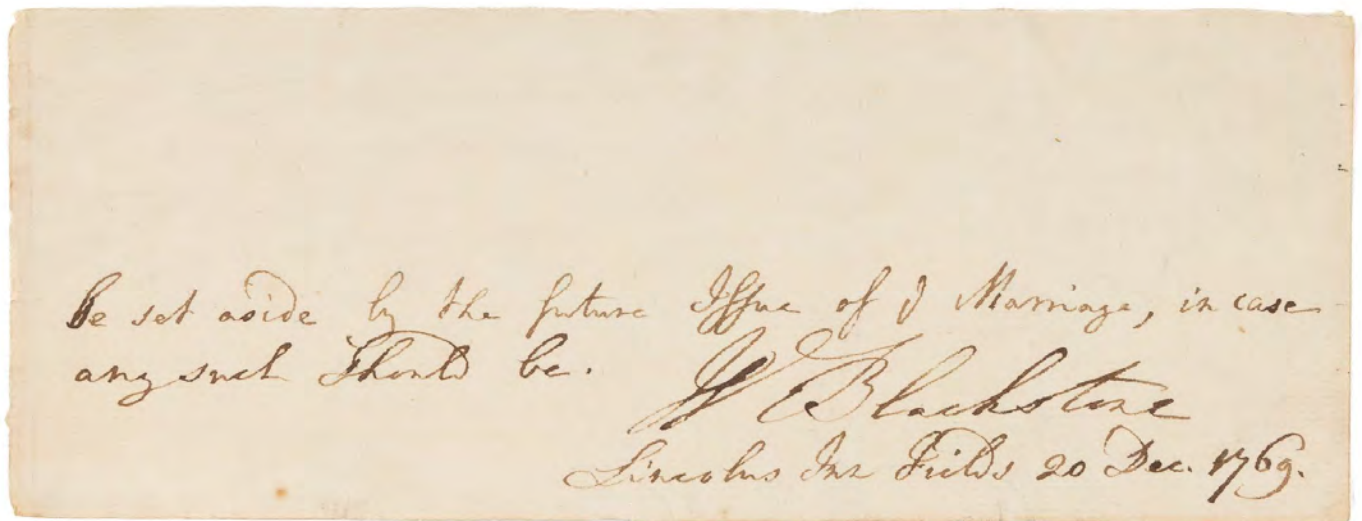 be set aside by the future Issue of ye Marriage, in case
any such should be.
W Blackstone
Lincolns Inn Fields 20 Dec. 1769.